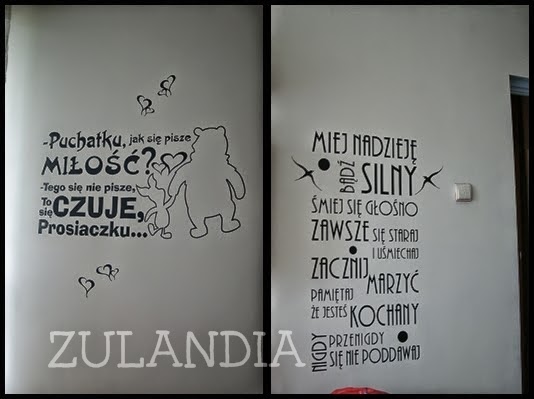 -Puchatku, jak się pisze
MIŁOŚĆ?
-Tego się nie pisze,
To się CZUJE,
Prosiaczku...
MIEJ NADZIEJĘ
BĄDŹ SILNY
ŚMIEJ SIĘ GŁOŚNO
ZAWSZE SIĘ STARAJ
I UŚMIECHAJ
ZACZNIJ
MARZYĆ
PAMIĘTAJ
ŻE JESTEŚ KOCHANY
NIGDY PRZENIGDY
SIĘ NIE PODDAWAJ
ZULANDIA